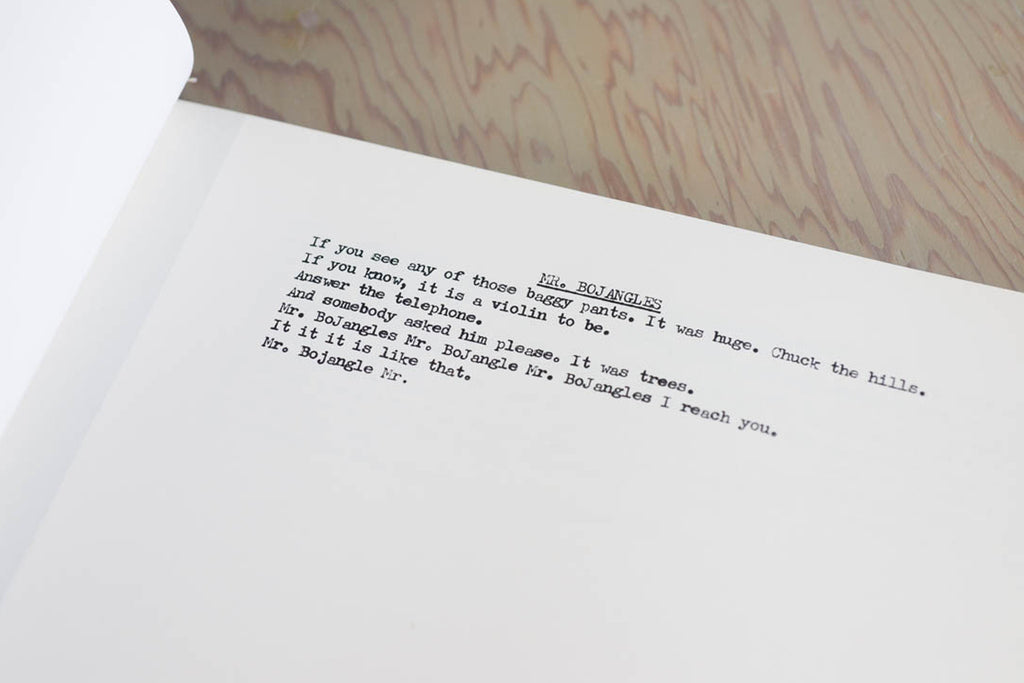 MR. BOJANGLES
If you see any of those baggy pants. It was huge. Chuck the hills.
If you know, it is a violin to be.
Answer the telephone.
And somebody asked him please. It was trees.
Mr. BoJangles Mr. BoJangle Mr. BoJangles I reach you.
It it it is like that.
Mr. Bojangle Mr.